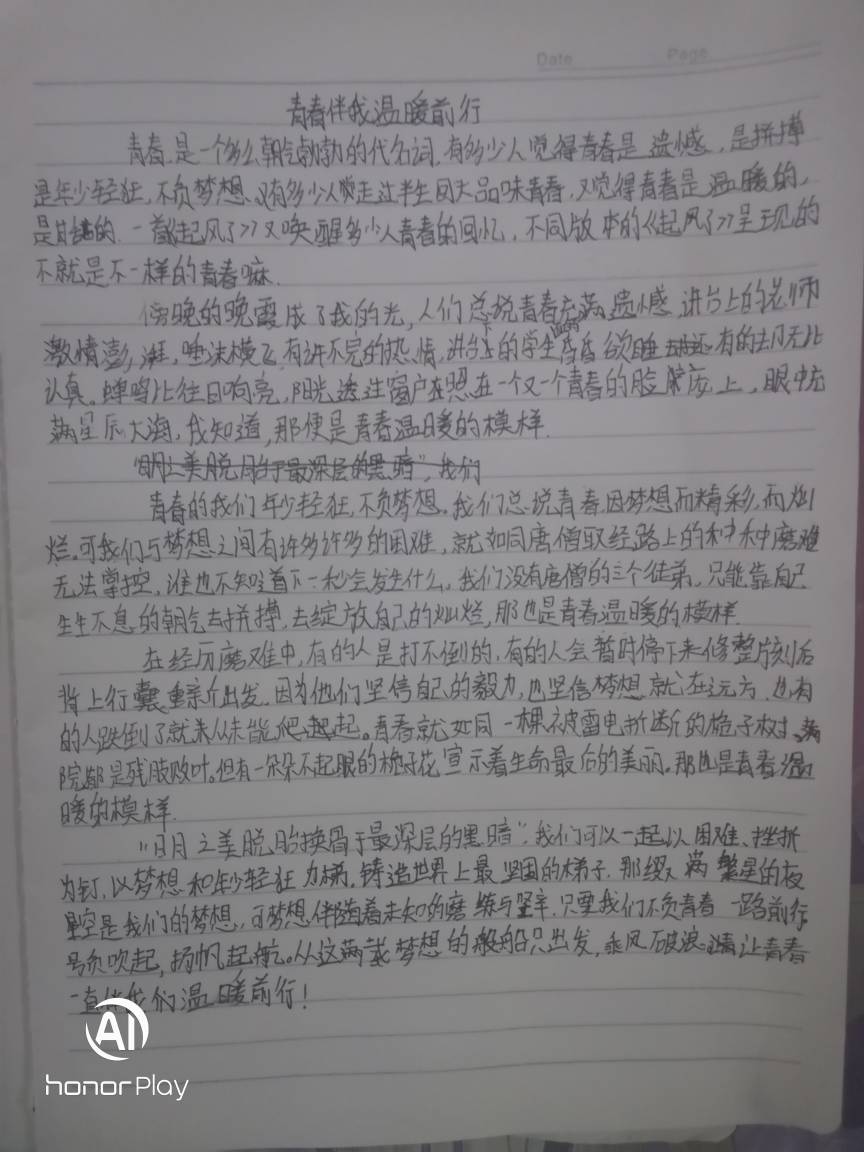 Date Page
青春伴我温暖前行
青春是一个多么朝气勃勃的代名词,有多少人觉得青春是遗憾,是拼搏
是年少轻狂,不负梦想。又有多少人走过半生回大品味青春,又觉得青春是温暖的,
是甘甜的.一首《起风了》又唤醒多少人青春的回忆,不同版本的《起风了》呈现的
不就是不一样的青春嘛.
傍晚的晚霞成了我的光,人们总说青春充满遗憾.讲台上的老师
激情澎湃,唾沫横飞,有许不完的热情,讲台下的学生有的昏昏欲睡有的却无比
认真。蝉鸣比往日响亮,阳光透过窗户在照在一个又一个青春的脸庞上,眼中充
满星辰大海,我知道,那便是青春温暖的模样.
"明之美脱胎于最深层的黑暗",我们
青春的我们年少轻狂,不负梦想。我们总说青春因梦想而精彩,而灿
烂。可我们与梦想之间有许多许多的困难,就如同唐僧取经路上的种种磨难
无法掌控,谁也不知道下一秒会发生什么。我们没有唐僧的三个徒弟,只能靠自己
生生不息的朝气去拼搏,去绽放自己的灿烂,那也是青春温暖的模样.
在经历磨难中,有的人是打不倒的,有的人会暂时停下来修整片刻后
背上行囊重新出发。因为他们坚信自己的毅力,也坚信梦想就在远方.也有
的人跌倒了就未从未能爬起。青春就如同一棵被雷电折断的栀子树,满
院都是残肢败叶。但有一朵朵不起眼的栀子花宣示着生命最后的美丽。那也是青春温
暖的模样.
"明月之美脱胎换骨于最深层的黑暗",我们可以一起以困难、挫折
为钉,以梦想和年少轻狂为梯,铸造世界上最坚固的梯子.那缀满繁星的夜
空是我们的梦想,可梦想伴随着未知的磨练与坚辛.只要我们不负青春一路前行
号角吹起,扬帆起航。从这满载梦想的船只出发,乘风破浪。请让青春
一直伴我们温暖前行!
AI
honor Play